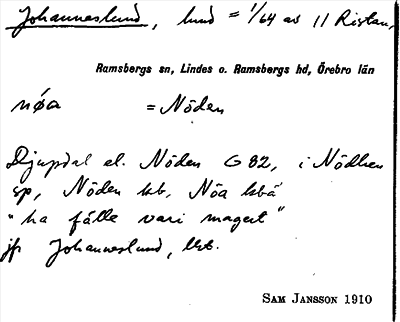 Johanneslund, lund = 1/64 av 11 Ristan,
Ramsbergs sn, Lindes o. Ramsbergs hd, Örebro län
nøa = Nöden
Djupdal el. Nöden G 82, i Nödben
sp, Nöden kb, Nöa kbä
"ha fälle vari magert"
jfr Johanneslund, lht.
SAM JANSSON 1910